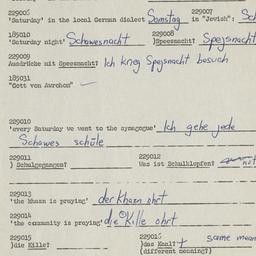 229006 229007
'Saturday' in the local German dialect Samstag in "Jewish": Sch
185010 229008
'Saturday night' Schawesnacht )Spejsnacht? Spejsnacht
229009
Ausdrücke mit Spejsnacht? Ich krieg Spejsnacht besuch
185031
"Gott von Awrohom"
229010
'every Saturday we went to the synagogue' Ich gehe jede
Schawes schüle
229011 229012
) Schulgegangen? Was ist Schulklopfen?
229013
'the khazn is praying' der Khazn ohrt
229014
'the community is praying' die Kille ohrt
229015 229016
)die Kille? )das Kaal? + same mean
(different meaning?)